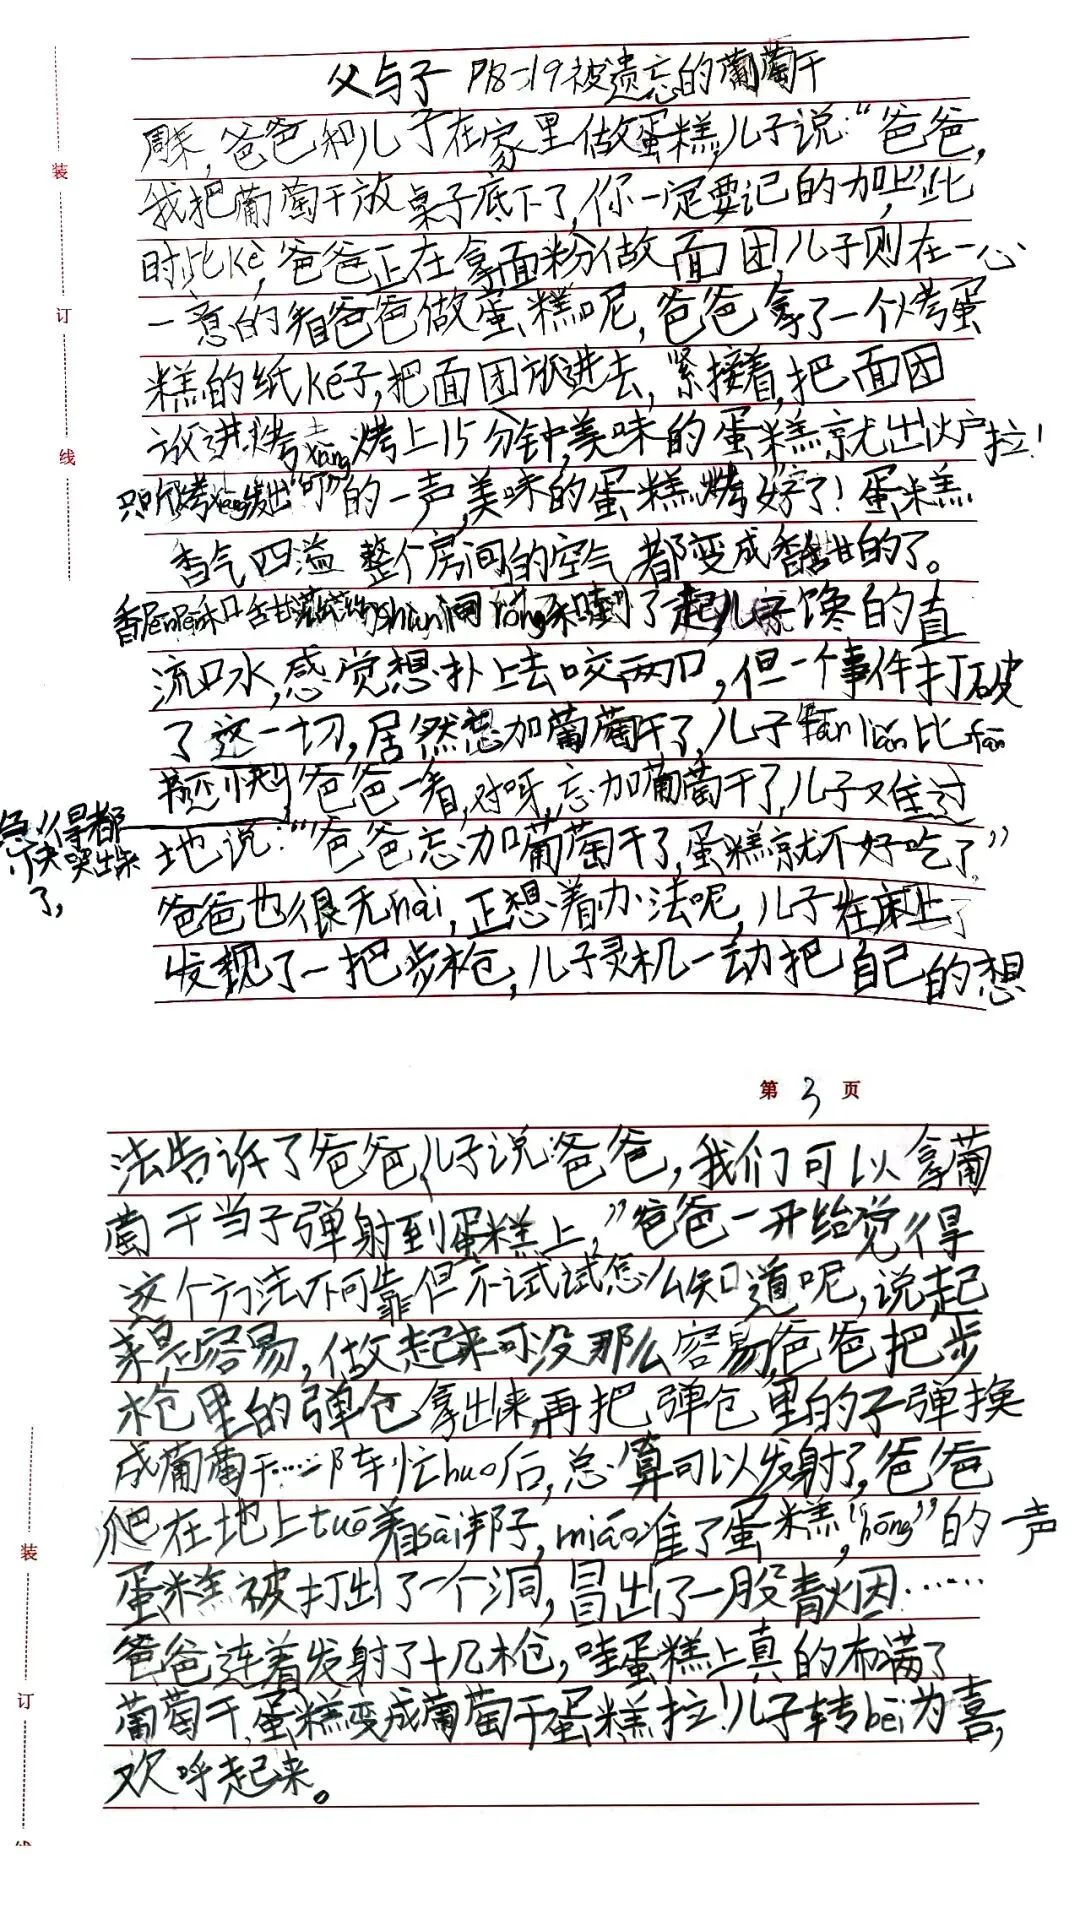 父与子 P18-19被遗忘的葡萄干
周末,爸爸和儿子在家里做蛋糕,儿子说:“爸爸,
装
我把葡萄干放桌子底下了,你一定要记的加上”此
时此kè,爸爸正在拿面粉做面团,儿子则在一心
订
一意的看爸爸做蛋糕呢,爸爸拿了一个烤蛋
糕的纸ké子,把面团放进去,紧接着,把面团
线
放进烤xiāng烤上15分钟,美味的蛋糕就出炉拉!
只听烤xiang发出“叮”的一声,美味的蛋糕烤好了!蛋糕
香气四溢 整个房间的空气都变成香甘的了。
香Penpen和口shùn间róng和到了起,儿子馋的直
流口水,感觉想扑上去咬两口,但一个事件打破
了这一切,居然想加葡萄干了,儿子fān liǎn比fān
书还快,爸爸一看,对呀,忘加葡萄干了,儿子难过
急得都
快哭出来
了,
地说:“爸爸忘加葡萄干了,蛋糕就不好吃了”
爸爸也很无nài,正想着办法呢,儿子在床上了
发现了一把步枪,儿子灵机一动把自己的想
第 3 页
法告诉了爸爸,儿子说:爸爸,我们可以拿葡
萄干当子弹射到蛋糕上,”爸爸一开始觉得
这个方法不可靠但不试试怎么知道呢,说起
来是容易,做起来可没那么容易,爸爸把步
枪里的弹仓拿出来,再把弹仓里的子弹换
成葡萄干……一阵忙huo后,总算可以发射了,爸爸
爬在地上tuō着sāi邦子,miáo准了蛋糕,“hōng”的一声
装
蛋糕被打出了一个洞,冒出了一股青烟……
爸爸连着发射了十几枪,哇蛋糕上真的布满了
订
葡萄干,蛋糕变成葡萄干蛋糕拉!儿子转bei为喜,
欢呼起来。